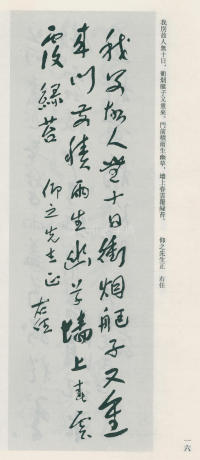 我別故人無十日,衝烟艇子又重來。門前積雨生幽草,墻上春雲覆綠苔。 仰之先生正 右任
我別故人無十日衝烟艇子又重
來門前積雨生幽草墻上春雲
覆綠苔 仰之先生正
右任
一六